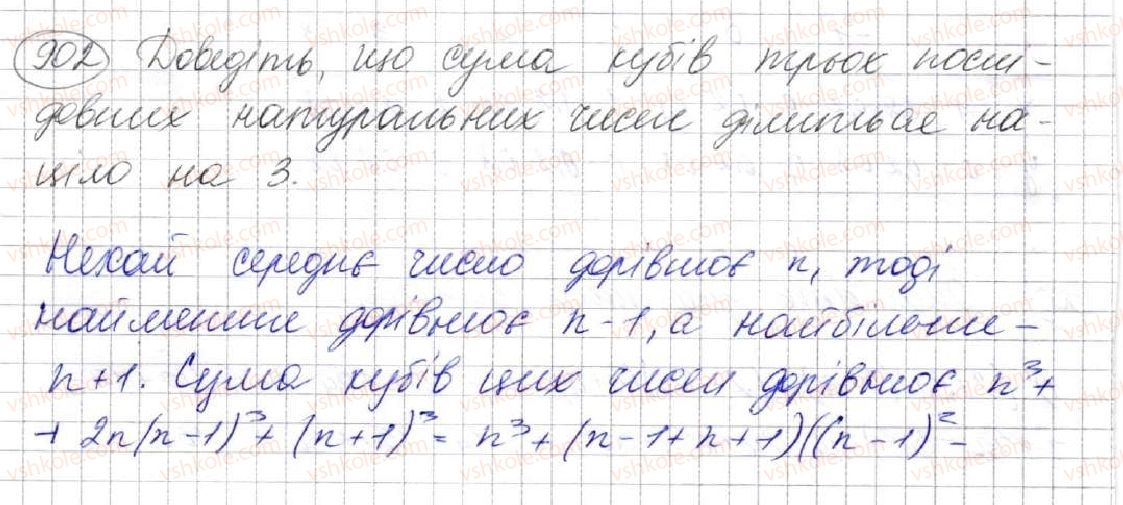 902 Доведіть, що сума кубів трьох послі-
довних натуральних чисел ділиться на-
ціло на 3.
Нехай середнє число дорівнює n, тоді
найменше дорівнює n-1, а найбільше -
n+1. Сума кубів цих чисел дорівнює n³+
+ 2n(n-1)³+(n+1)³= n³+(n-1+n+1)((n-1)²-